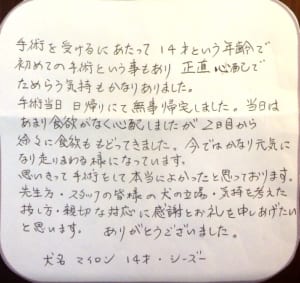 手術を受けるにあたって 14才という年齢で
初めての手術という事もあり 正直 心配で
ためらう気持もかなりありました。
手術当日 日帰りにて無事帰宅しました。当日は
あまり食欲がなく心配しましたが 2日目から
徐々に食欲ももどってきました。今ではかなり元気に
なり走りまわる様になっています。
思いきって手術をして本当によかったと思っております。
先生方・スタッフの皆様の犬の立場・気持を考えた
お話し方・親切な対応に感謝とお礼を申しあげたい
と思います。 ありがとうございました。
犬名 マイロン 14才・シーズー